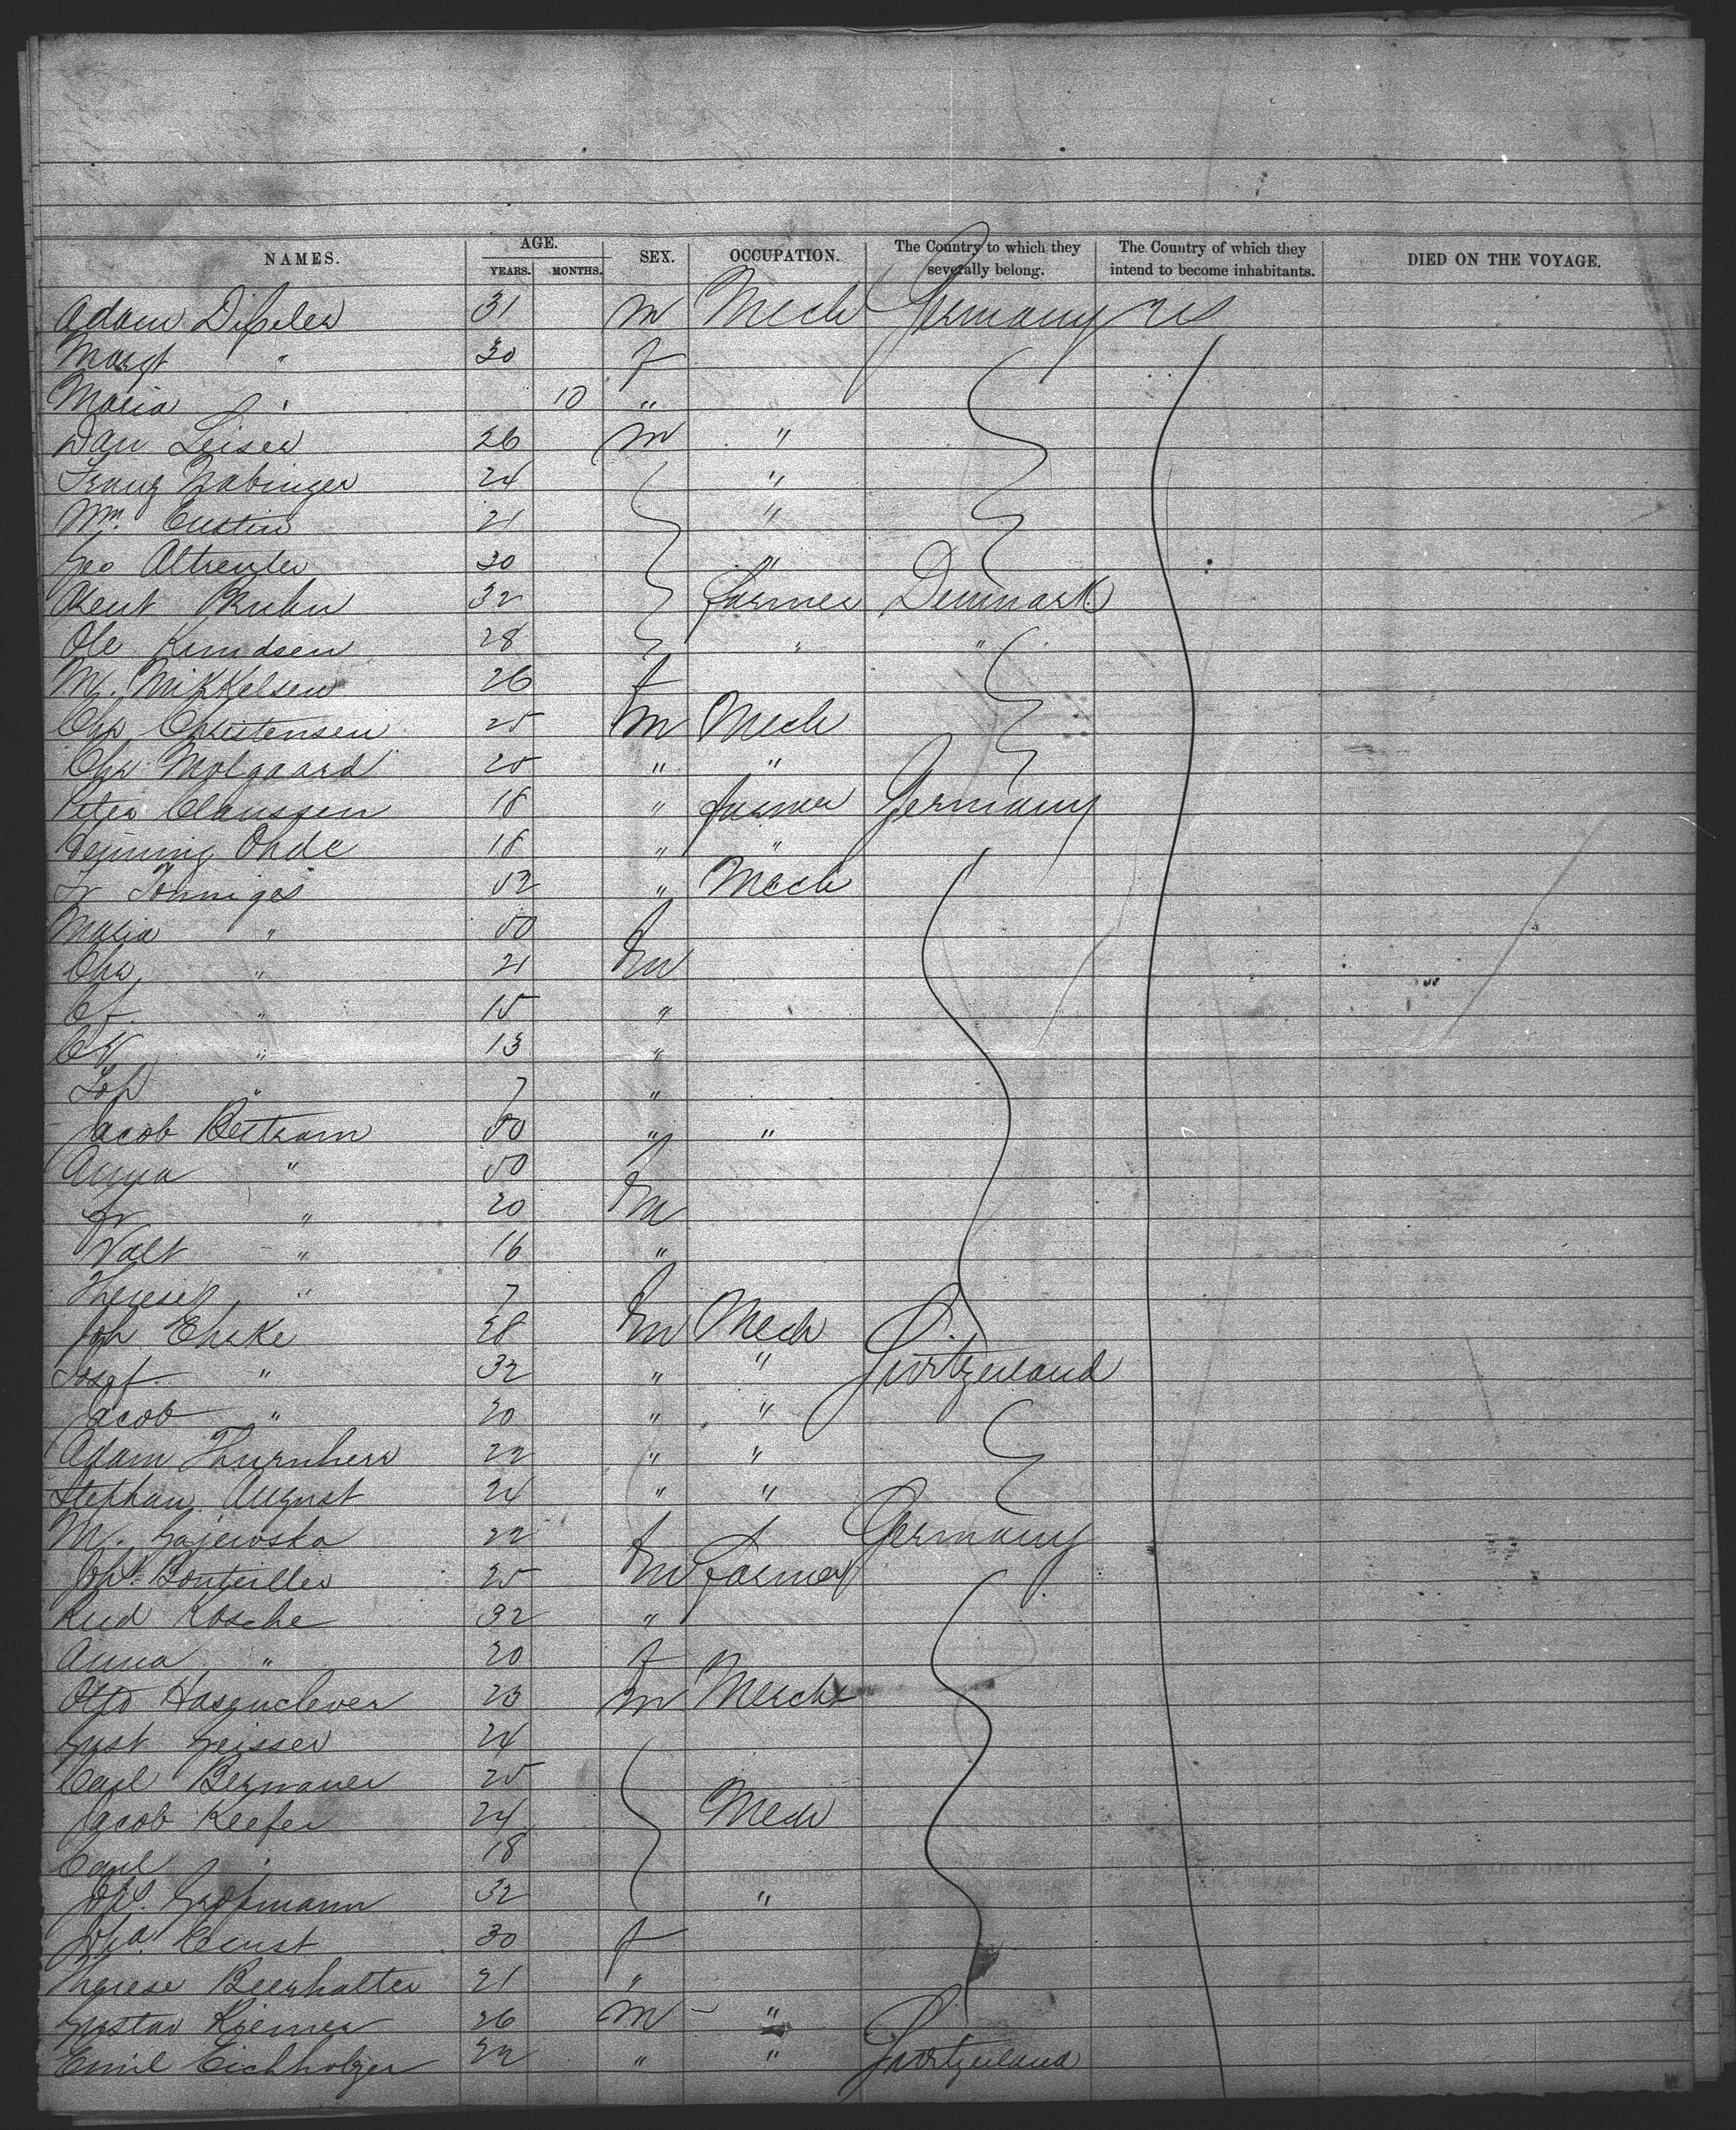 NAMES. AGE. SEX. OCCUPATION. The Country to which they severally belong. The Country of which they intend to become inhabitants. DIED ON THE VOYAGE.
YEARS. MONTHS.
Adam 31 m Mech Germany US
Margt " 30 f
Maria " 10 " "
Dan Leiser 26 m "
Franz 24 "
Wm. Eustin 21 "
Geo Altreuter 30 "
Bruhn 32 farmer Denmark
Ole Knudsen 28 " "
M. Mikkelsen 26 f
Chr Christensen 25 m Mech
Chr Molgaard 25 " "
Peter Claussen 18 " farmer Germany
Ohde 18 " "
Fr Tonniges 52 " Mech
Maria " 50 f
Chr " 21 m
" 15 "
" 13 "
" 7 "
Jacob Bertram 50 " "
Anna " 50 f
Fr " 20 m
Valt " 16 "
" 7 f
Joh 38 m Mech
" 32 " " Switzerland
Jacob " 20 " "
Adam Thurnherr 22 " "
Stephan August 24 " "
M. Gajewska 22 f Germany
Bouteiller 25 m farmer
Rud Kosche 32 "
Anna " 20 f
Otto Hasenclever 23 m Mercht
Gust Geisser 24
Carl Bernauer 25
Jacob Keefer 24 Mech
Carl " 18
32 "
Ernst 30 f
Therese Beerhalter 21 "
Gustav Riemer 26 m "
Emil Eichholzer 22 " " Switzerland